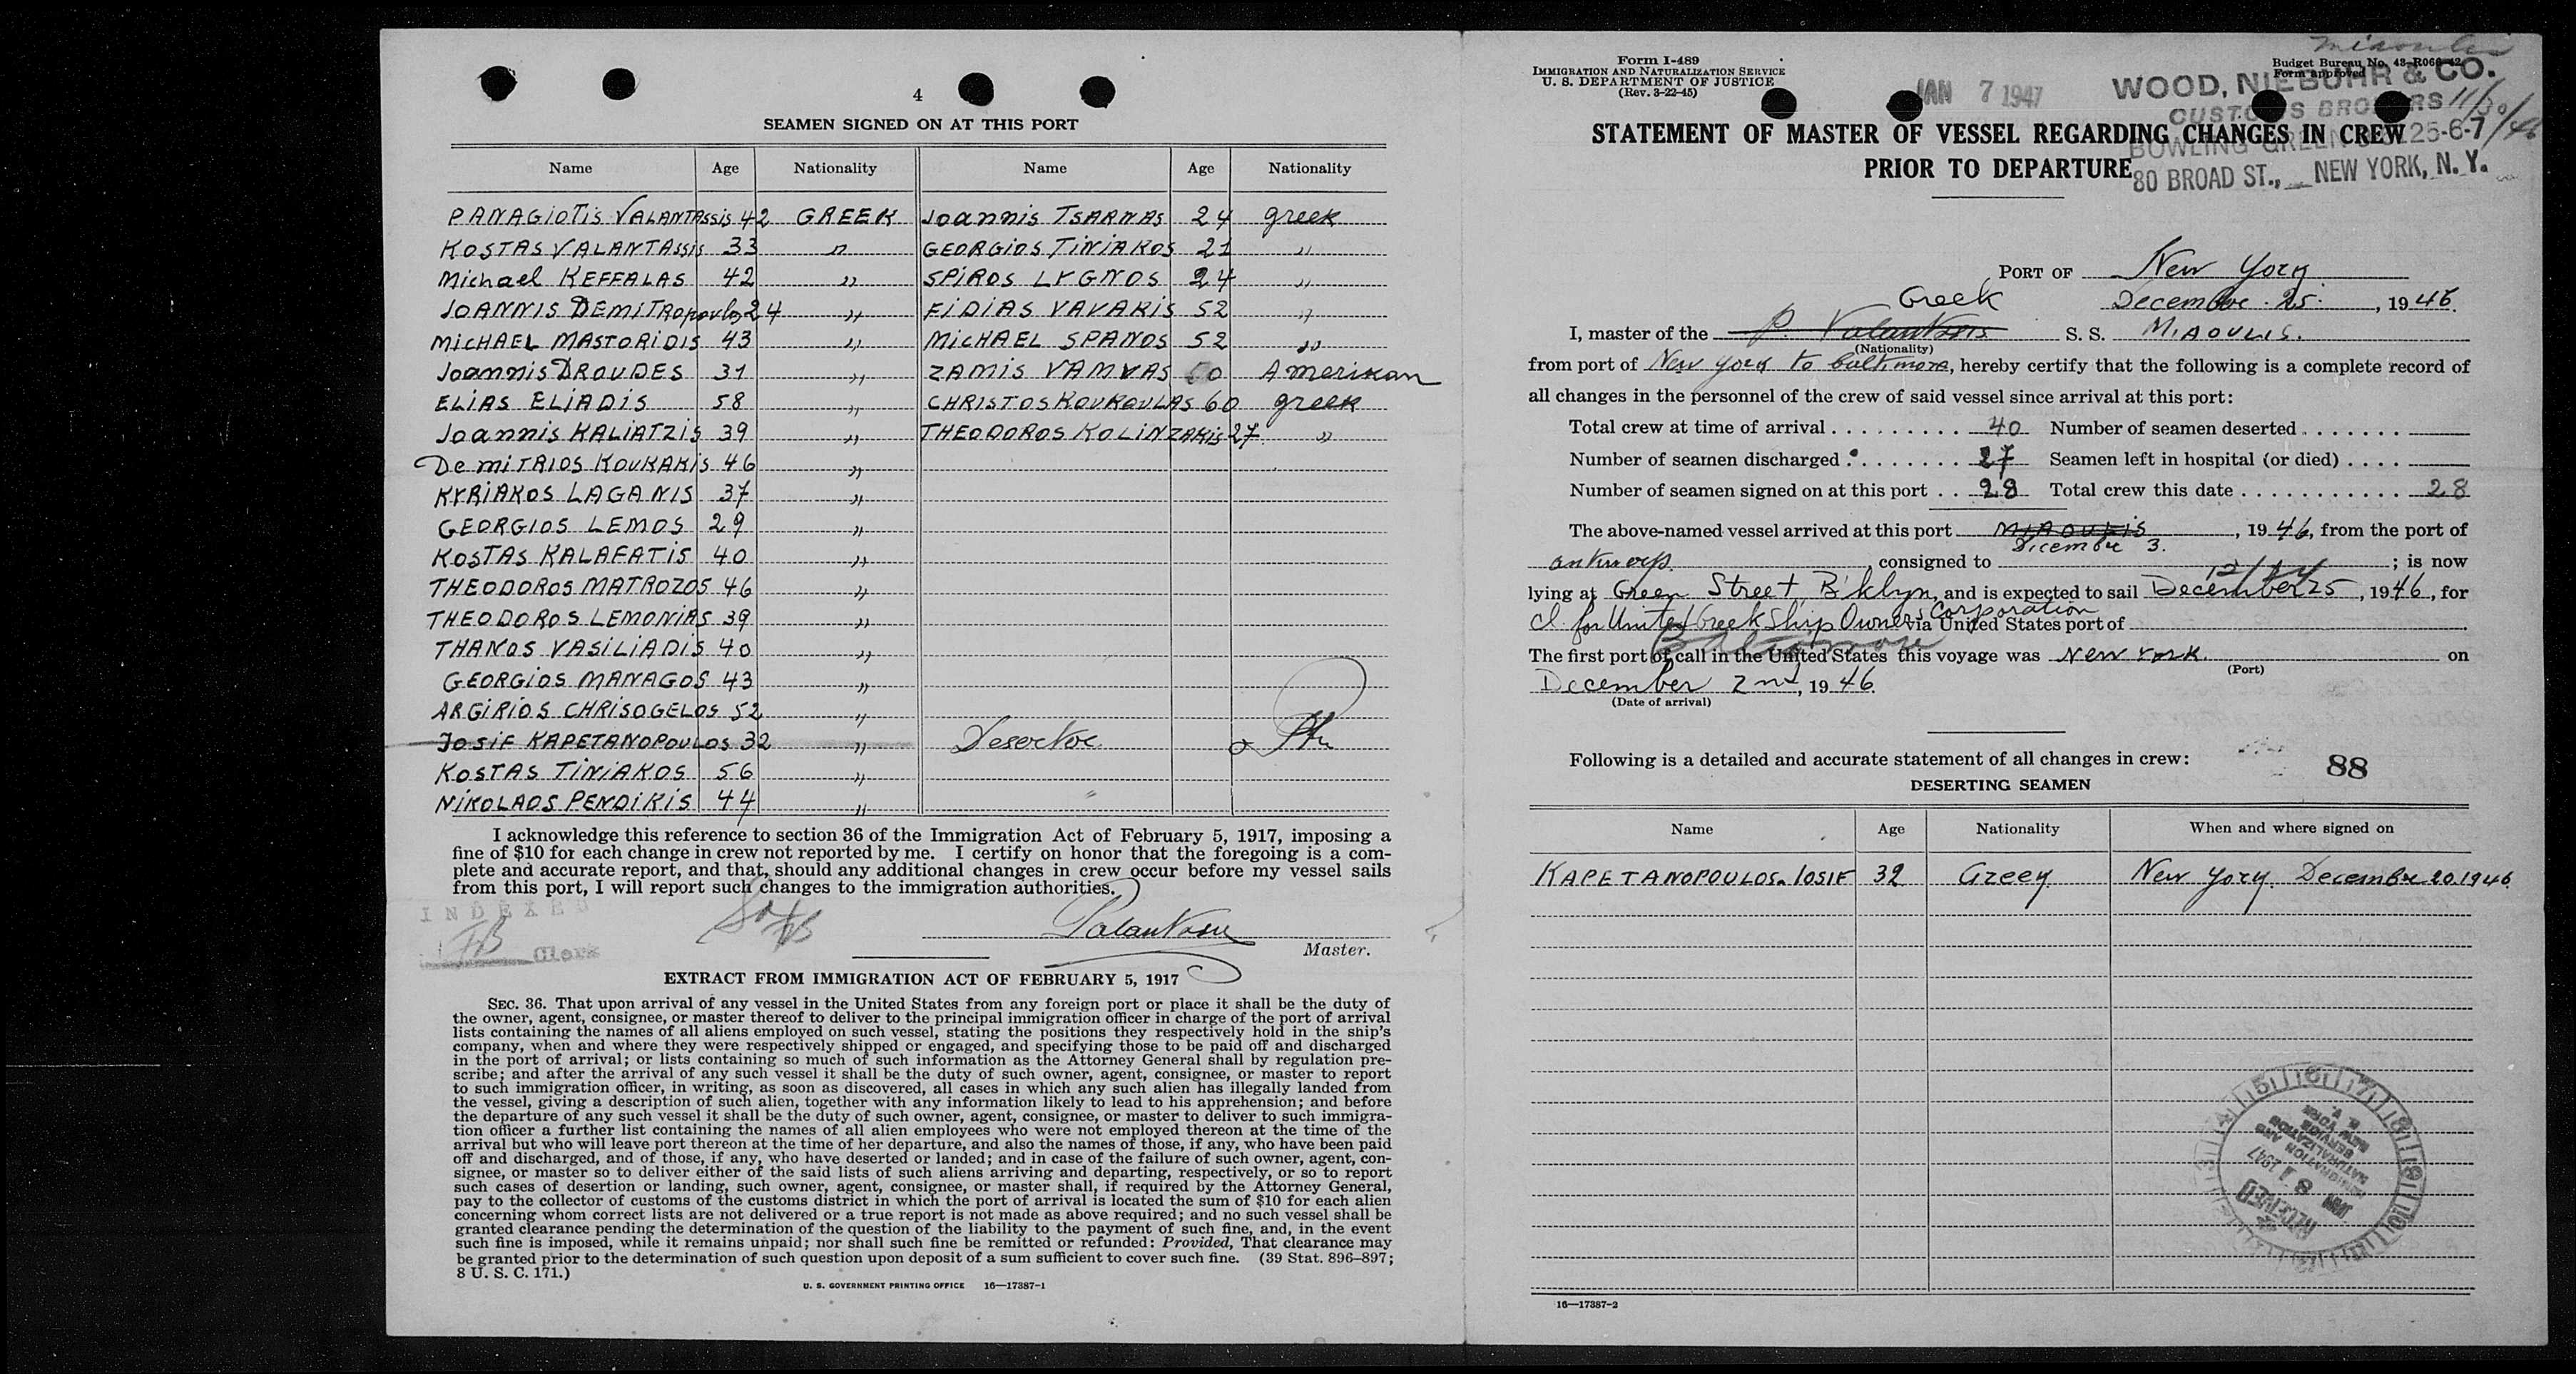 4
SEAMEN SIGNED ON AT THIS PORT
Name Age Nationality Name Age Nationality
PANAGIOTIS VALANTASSIS 42 GREEK JOANNIS TSARNAS 24 greek
KOSTAS VALANTASSIS 33 " GEORGIOS TINIAKOS 21 "
Michael KEFFALAS 42 " SPIROS LYGNOS 24 "
JOANNIS DEMITROpoulos 24 " FIDIAS VAVARIS 52 "
MICHAEL MASTORIDIS 43 " MICHAEL SPANOS 52 "
Joannis DROUDES 31 " ZAMIS VAMVAS 50 Amerikan
ELIAS ELIADIS 58 " CHRISTOS KOUKOULAS 60 greek
Joannis KALIATZIS 39 " THEODOROS KOLINZAKIS 27 "
DemiTRIOS KOUKAKIS 46 "
KYRIAKOS LAGANIS 37 "
GEORGIOS LEMOS 29 "
KOSTAS KALAFATIS 40 "
THEODOROS MATROZOS 46 "
THEODOROS LEMONIAS 39 "
THANOS VASILIADIS 40 "
GEORGIOS MANAGOS 43 "
ARGIRIOS CHRISOGELOS 52 "
JOSIF KAPETANOPOULOS 32 "
KOSTAS TINIAKOS 56 "
NIKOLAOS PENDIKIS 44 "
I acknowledge this reference to section 36 of the Immigration Act of February 5, 1917, imposing a
fine of $10 for each change in crew not reported by me. I certify on honor that the foregoing is a com-
plete and accurate report, and that, should any additional changes in crew occur before my vessel sails
from this port, I will report such changes to the immigration authorities.
INDEXED
Clerk
Master.
EXTRACT FROM IMMIGRATION ACT OF FEBRUARY 5, 1917
SEC. 36. That upon arrival of any vessel in the United States from any foreign port or place it shall be the duty of
the owner, agent, consignee, or master thereof to deliver to the principal immigration officer in charge of the port of arrival
lists containing the names of all aliens employed on such vessel, stating the positions they respectively hold in the ship's
company, when and where they were respectively shipped or engaged, and specifying those to be paid off and discharged
in the port of arrival; or lists containing so much of such information as the Attorney General shall by regulation pre-
scribe; and after the arrival of any such vessel it shall be the duty of such owner, agent, consignee, or master to report
to such immigration officer, in writing, as soon as discovered, all cases in which any such alien has illegally landed from
the vessel, giving a description of such alien, together with any information likely to lead to his apprehension; and before
the departure of any such vessel it shall be the duty of such owner, agent, consignee, or master to deliver to such immigra-
tion officer a further list containing the names of all alien employees who were not employed thereon at the time of the
arrival but who will leave port thereon at the time of her departure, and also the names of those, if any, who have been paid
off and discharged, and of those, if any, who have deserted or landed; and in case of the failure of such owner, agent, con-
signee, or master so to deliver either of the said lists of such aliens arriving and departing, respectively, or so to report
such cases of desertion or landing, such owner, agent, consignee, or master shall, if required by the Attorney General,
pay to the collector of customs of the customs district in which the port of arrival is located the sum of $10 for each alien
concerning whom correct lists are not delivered or a true report is not made as above required; and no such vessel shall be
granted clearance pending the determination of the question of the liability to the payment of such fine, and, in the event
such fine is imposed, while it remains unpaid; nor shall such fine be remitted or refunded: Provided, That clearance may
be granted prior to the determination of such question upon deposit of a sum sufficient to cover such fine. (39 Stat. 896–897;
8 U. S. C. 171.)
U. S. GOVERNMENT PRINTING OFFICE 16—17387-1
Miaoulis
Form I-489
IMMIGRATION AND NATURALIZATION SERVICE
U. S. DEPARTMENT OF JUSTICE
(Rev. 3-22-45)
JAN 7 1947
Budget Bureau No. 43-R066-42
Form approved
WOOD, NIEBUHR & CO.
CUSTOMS BROKERS
11/30/46
BOWLING GREEN 25-6-7
80 BROAD ST., NEW YORK, N. Y.
STATEMENT OF MASTER OF VESSEL REGARDING CHANGES IN CREW
PRIOR TO DEPARTURE
PORT OF New York
Greek Decembre 25, 1946
I, master of the P. Valantasis S. S. MIAOULIS.
(Nationality)
from port of New york to baltimore, hereby certify that the following is a complete record of
all changes in the personnel of the crew of said vessel since arrival at this port:
Total crew at time of arrival 40 Number of seamen deserted
Number of seamen discharged 27 Seamen left in hospital (or died)
Number of seamen signed on at this port 28 Total crew this date 28
The above-named vessel arrived at this port MIAOULIS, 1946, from the port of
Decembre 3.
antwerp, consigned to ; is now
12/24
lying at Green Street, B'klyn, and is expected to sail December 25, 1946, for
cl. for United Greek Ship Owners Corporation via United States port of
Baltimore
The first port of call in the United States this voyage was NEW YORK. on
(Port)
December 2nd, 1946.
(Date of arrival)
Following is a detailed and accurate statement of all changes in crew:
88
DESERTING SEAMEN
Name Age Nationality When and where signed on
KAPETANOPOULOS. IOSIF 32 Greey New yory. Decembre 20.1946.
RECEIVED
JAN 8 1947
IMMIGRATION AND
NATURALIZATION
SERVICE
NEW YORK
N. Y.
16—17387-2